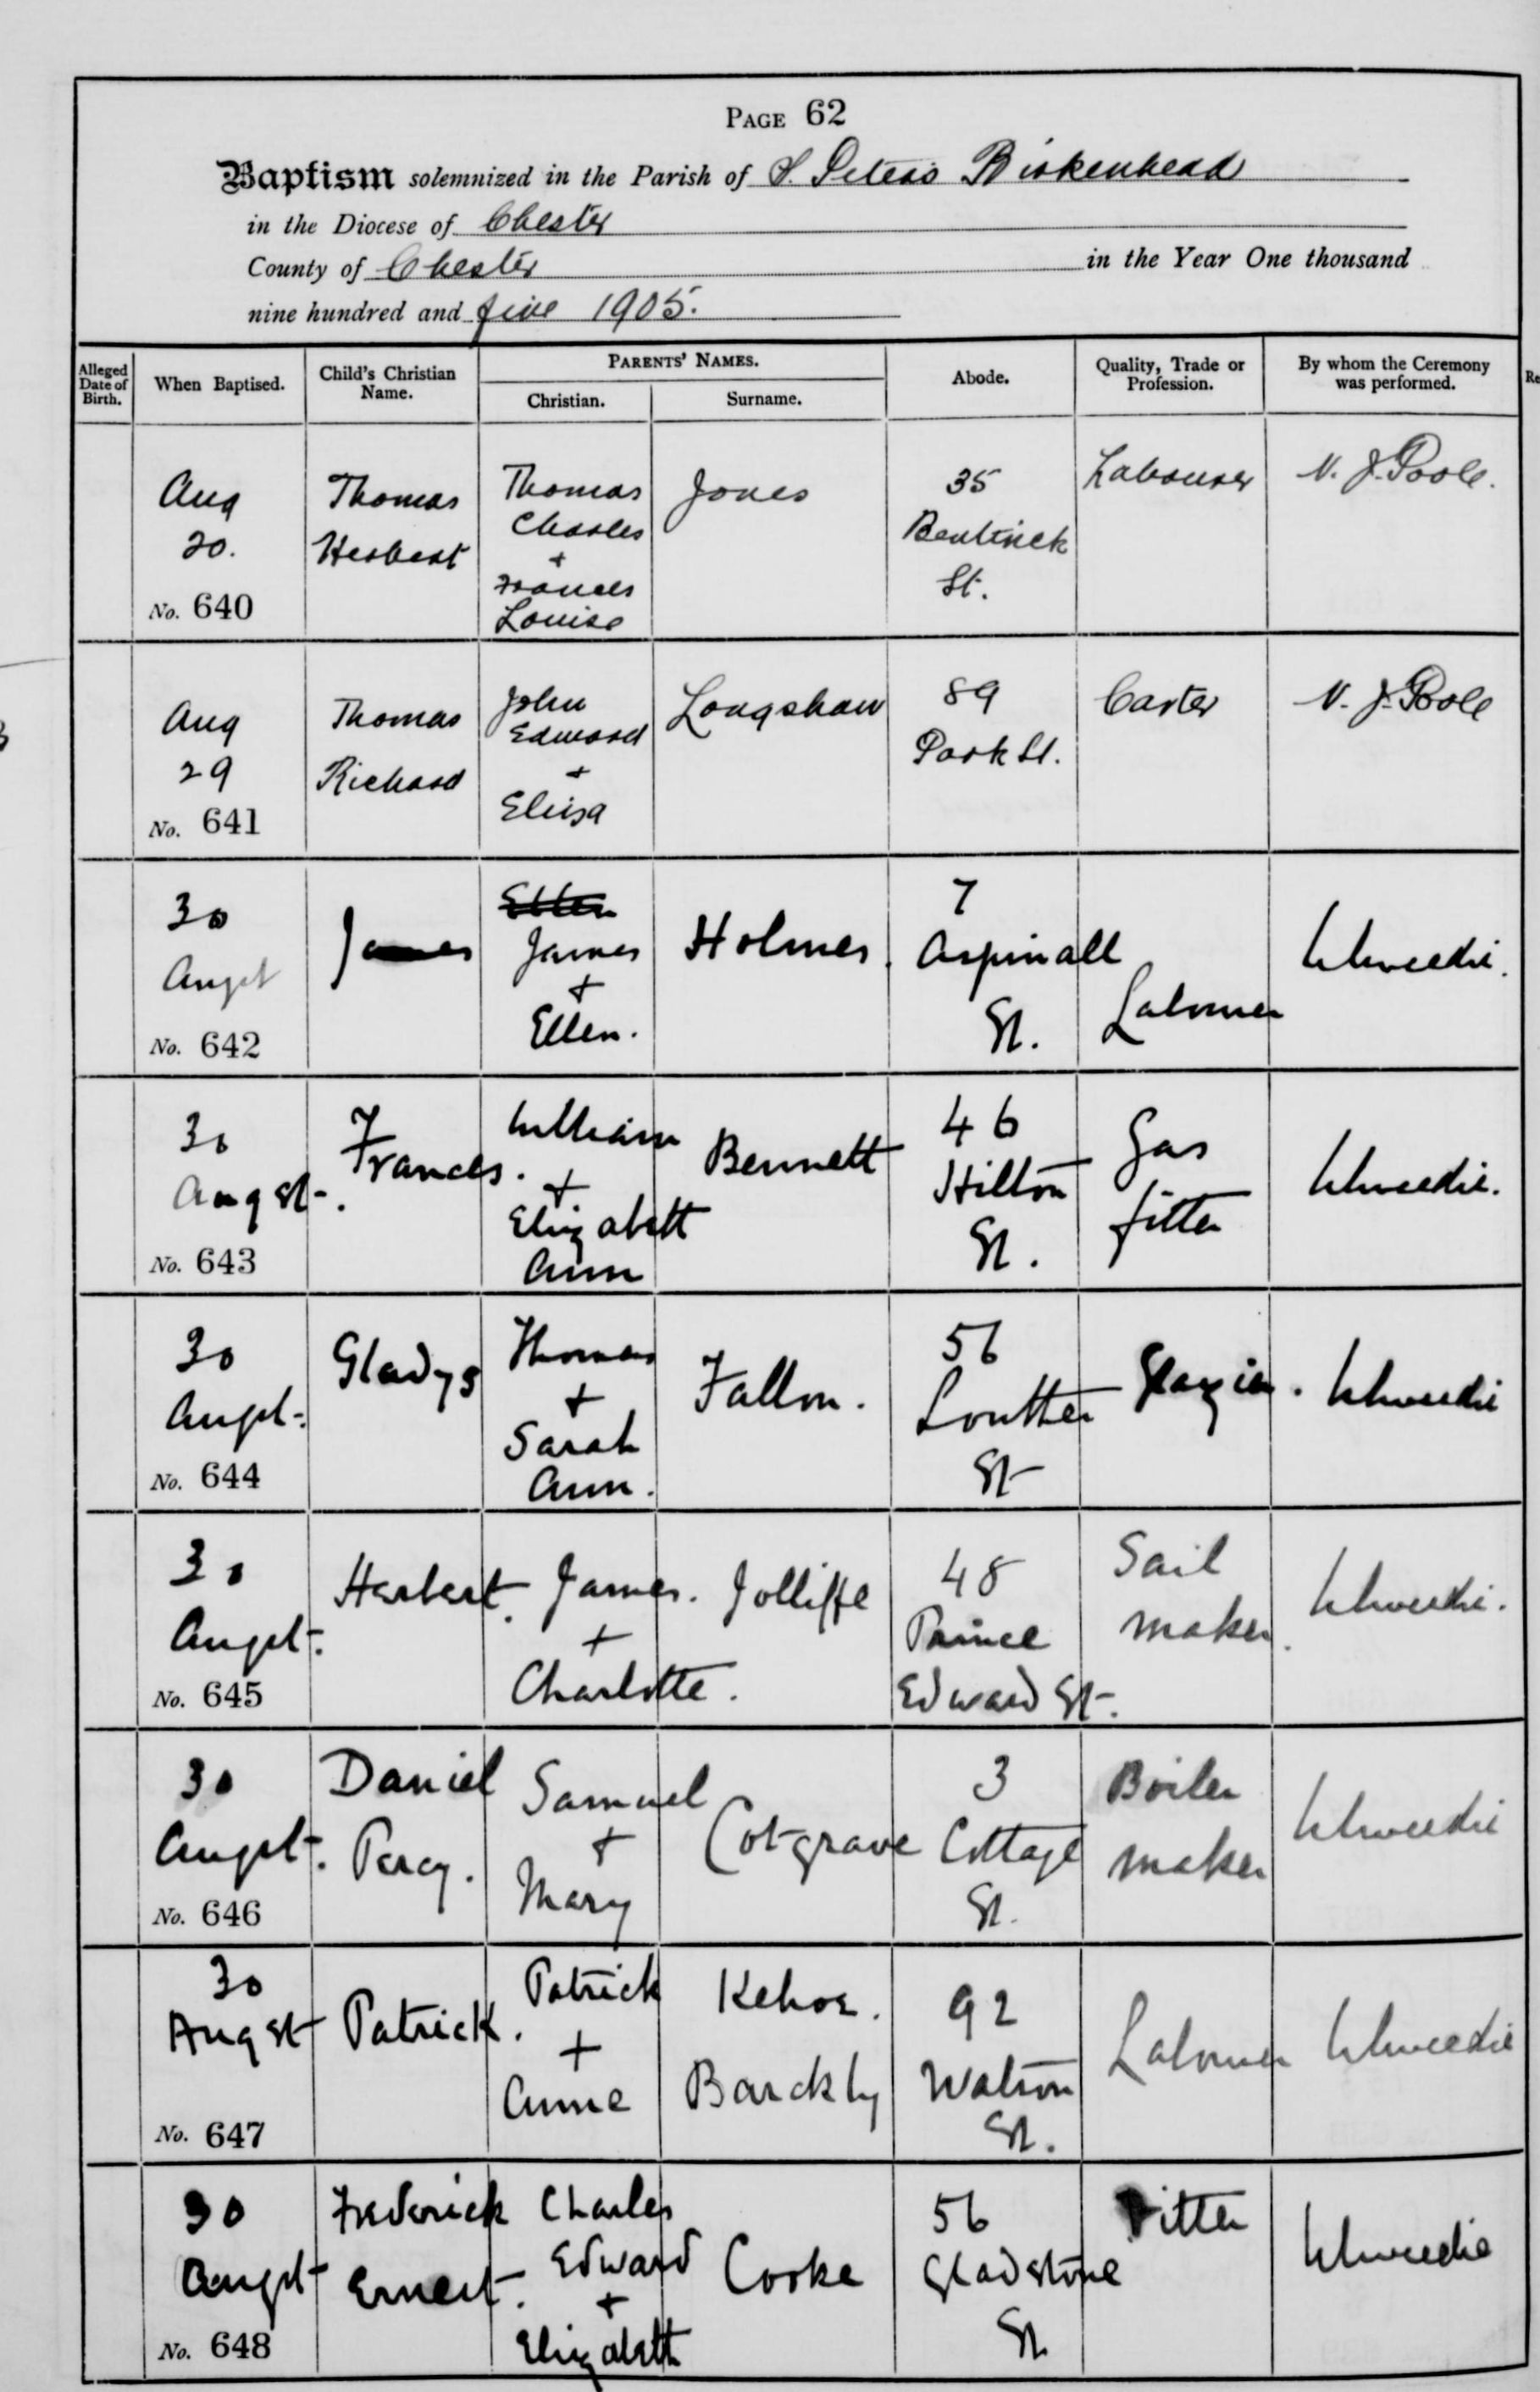 PAGE 62
Baptism solemnized in the Parish of S. Peters Birkenhead
in the Diocese of Chester
County of Chester in the Year One thousand
nine hundred and five 1905.
Alleged Date of Birth. When Baptised. Child's Christian Name. PARENTS' NAMES. Christian. Surname. Abode. Quality, Trade or Profession. By whom the Ceremony was performed.
Aug 20. No. 640 Thomas Herbert Thomas Charles + Frances Louise Jones 35 Bentinck St. Labourer N. J. Poole.
Aug 29 No. 641 Thomas Richard John Edward + Eliza Longshaw 89 Park St. Carter N. J. Poole
30 Augst No. 642 James Ellen James + Ellen. Holmes. 7 Aspinall St. Labourer
30 Augst. No. 643 Frances. William + Elizabeth Ann Bennett 46 Hilton St. Gas fitter
30 Augst. No. 644 Gladys Thomas + Sarah Ann. Fallon. 56 St Glazier.
30 Augst. No. 645 Herbert. James. + Charlotte. Jolliffe 48 Prince Edward St. Sail maker.
30 Augst. No. 646 Daniel Percy. Samuel + Mary Cotgrave 3 Cottage St. Boiler maker
30 Augst No. 647 Patrick. Patrick + Annie Kehoe. Barckly 92 Watson St. Labourer
30 Augst No. 648 Frederick Ernest. Charles Edward + Elizabeth Cooke 56 Gladstone St. Fitter